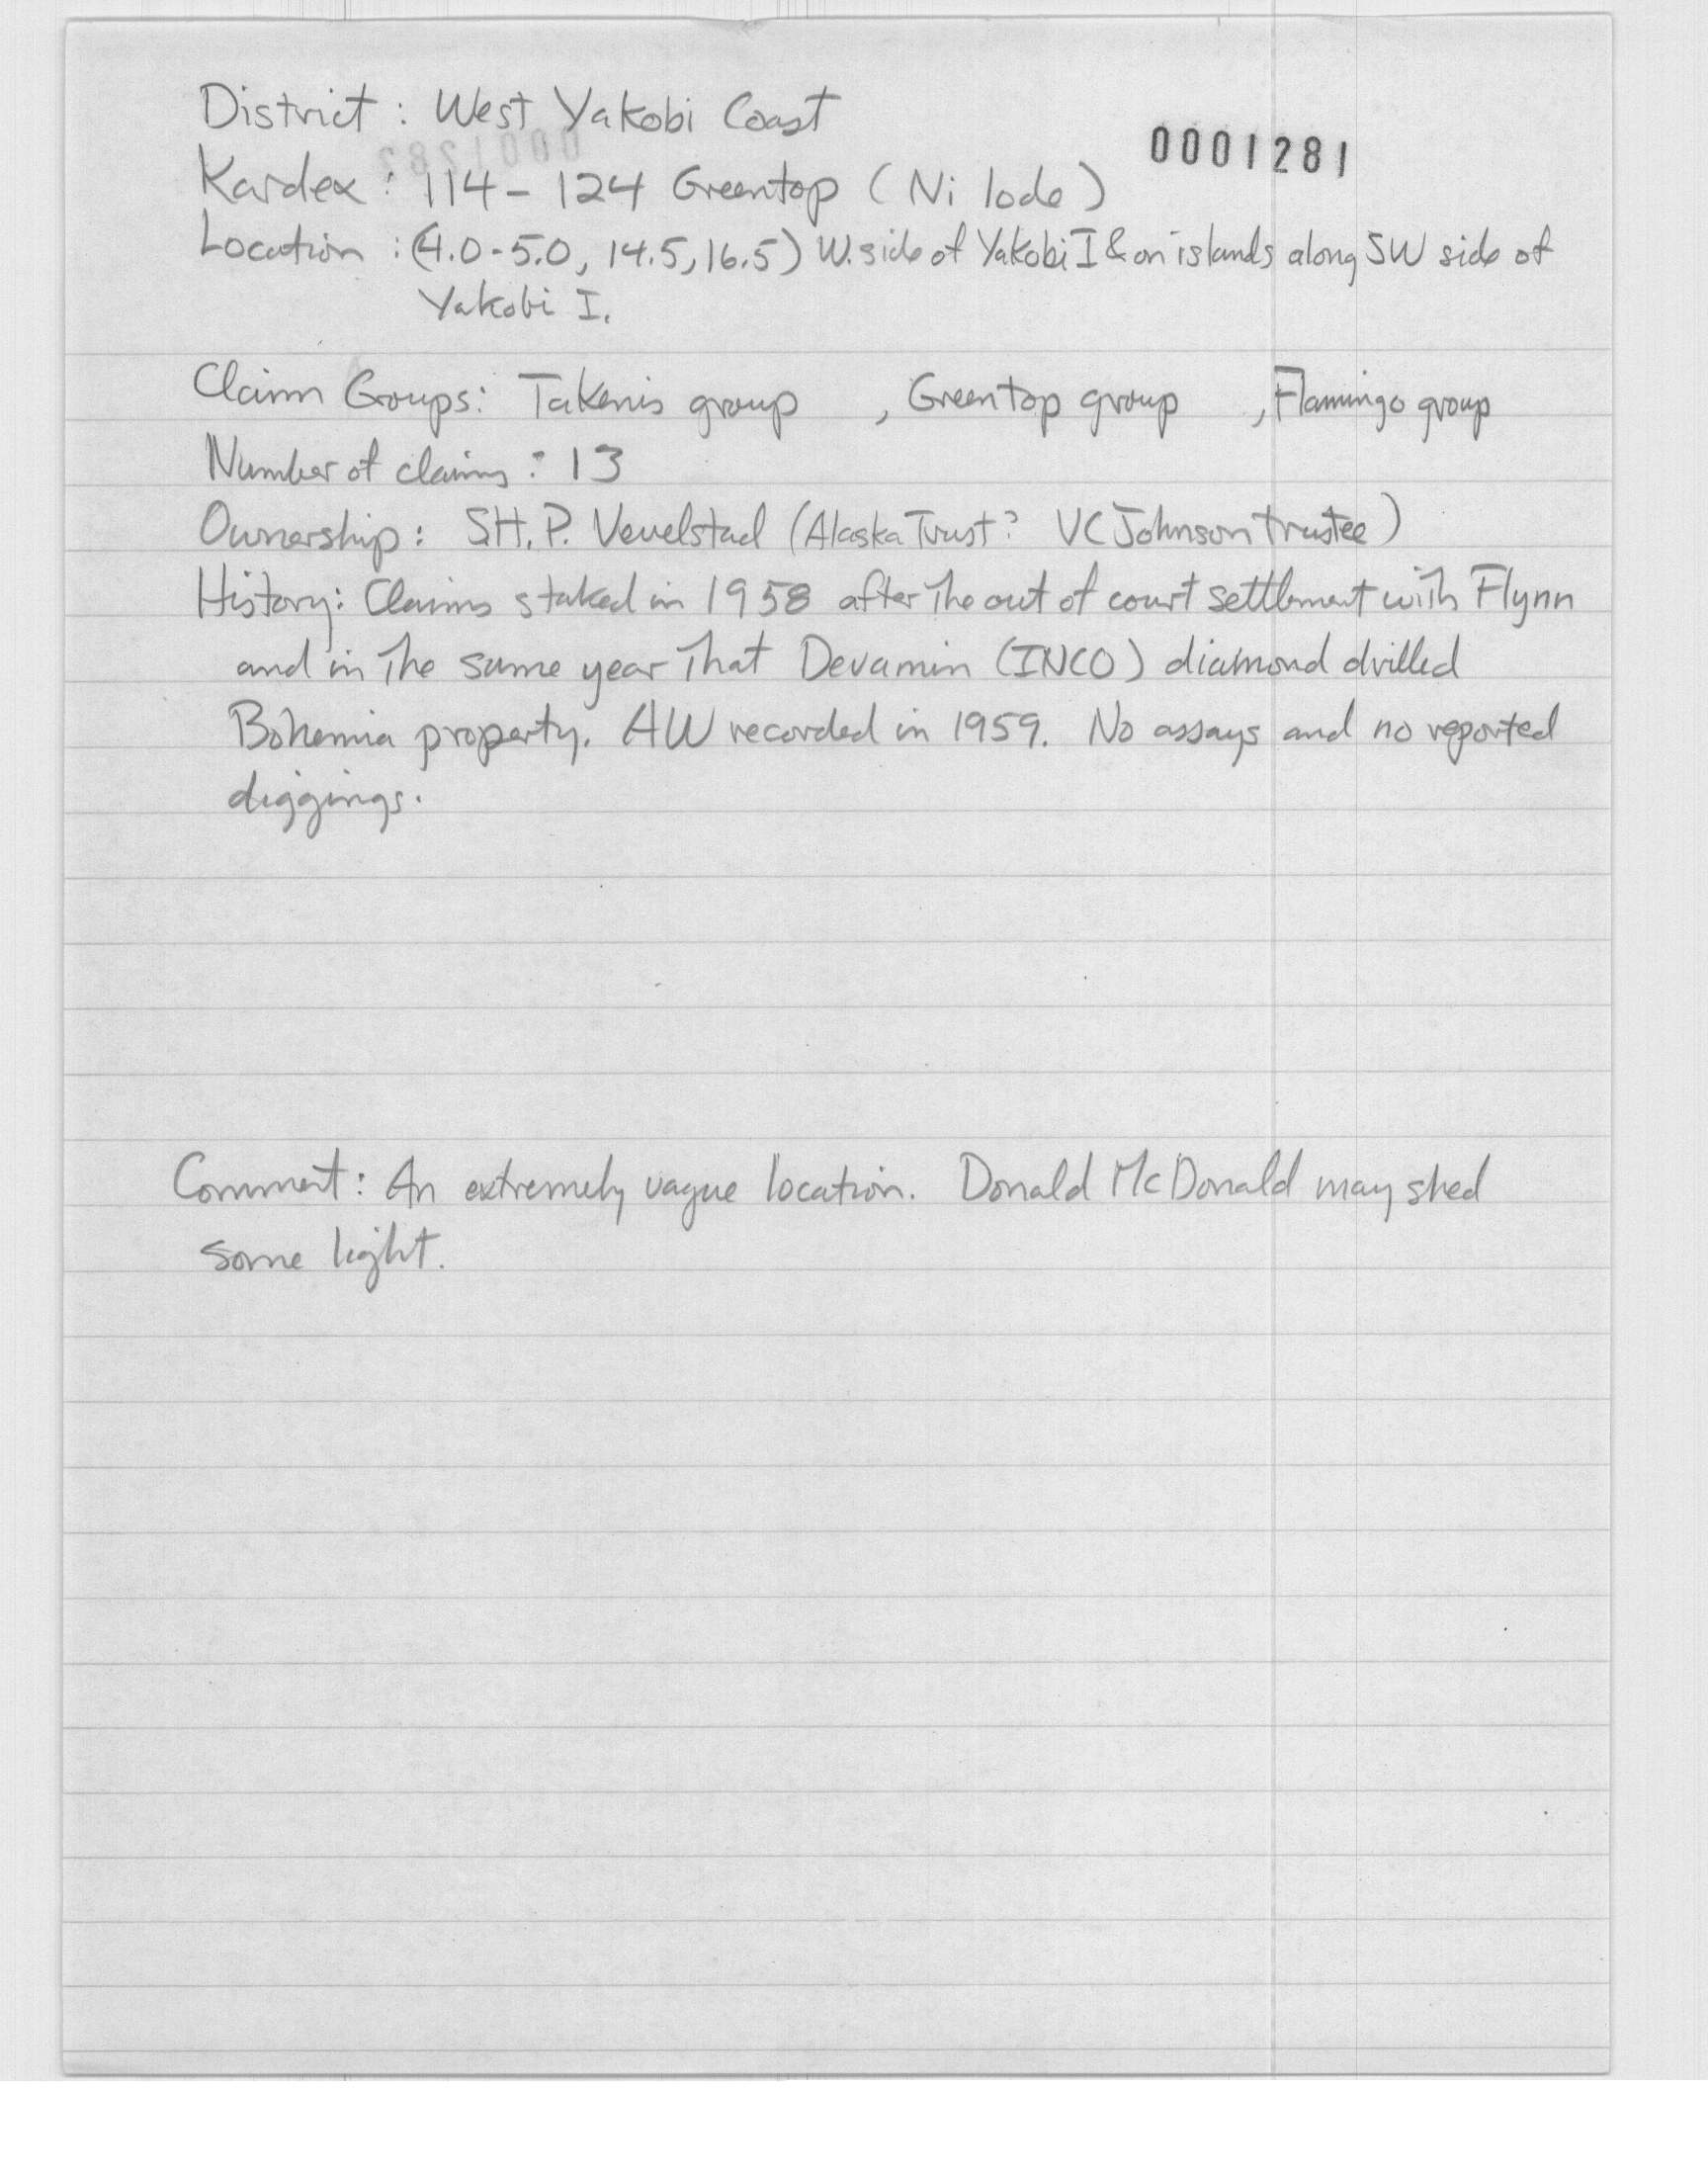 District : West Yakobi Coast
0001281
Kardex : 114-124 Greentop (Ni lode)
Location : (4.0-5.0, 14.5, 16.5) W. side of Yakobi I & on islands along SW side of
Yakobi I.
Claim Groups: Takenis group , Greentop group , Flamingo group
Number of claims : 13
Ownership: S.H.P. Vevelstad (Alaska Trust? VC Johnson trustee)
History: Claims staked in 1958 after the out of court settlement with Flynn
and in the same year that Devamin (INCO) diamond drilled
Bohemia property. AW recorded in 1959. No assays and no reported
diggings.
Comment: An extremely vague location. Donald McDonald may shed
some light.